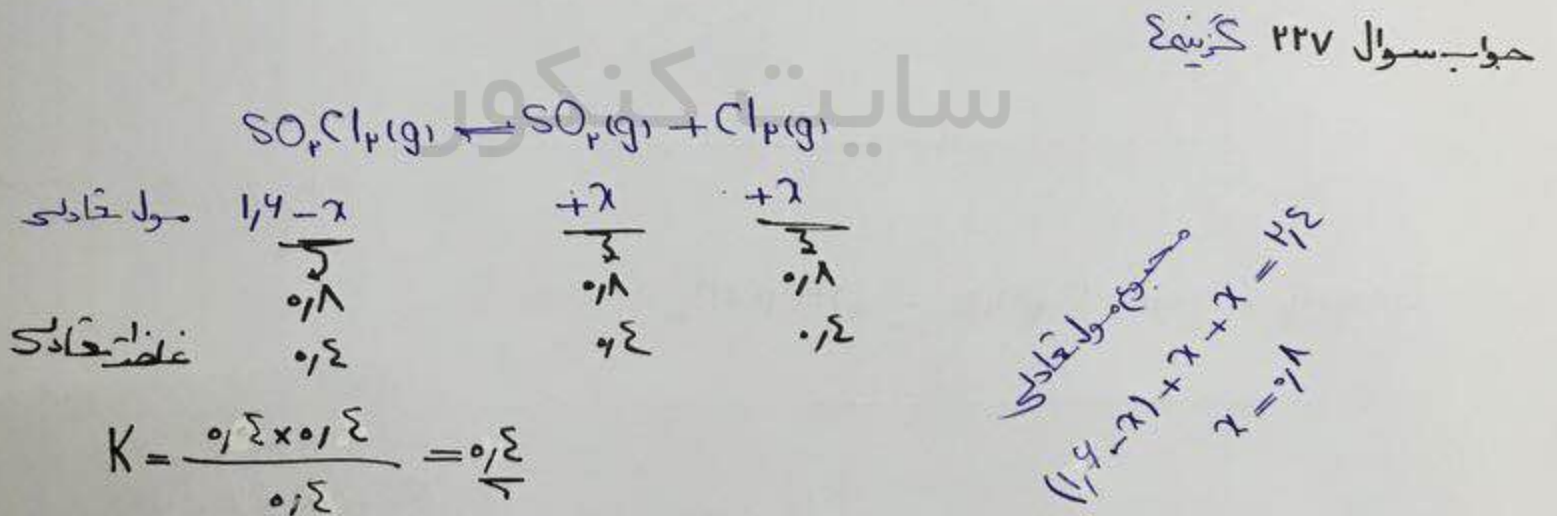 جواب سوال ۲۲۷ گزینه ٤
سایت کنکور
SO۲Cl۲(g) ⇌ SO۲(g) + Cl۲(g)
مول تعادلی ۱,۶-x +x +x
۰,۸ ۰,۸ ۰,۸
غلظت تعادلی ۰,٤ ۰,٤ ۰,٤
K = ۰,٤×۰,٤ / ۰,٤ = ۰,٤
مجموع مول تعادلی
(۱,۶-x)+x+x=۲,٤
x=۰,۸